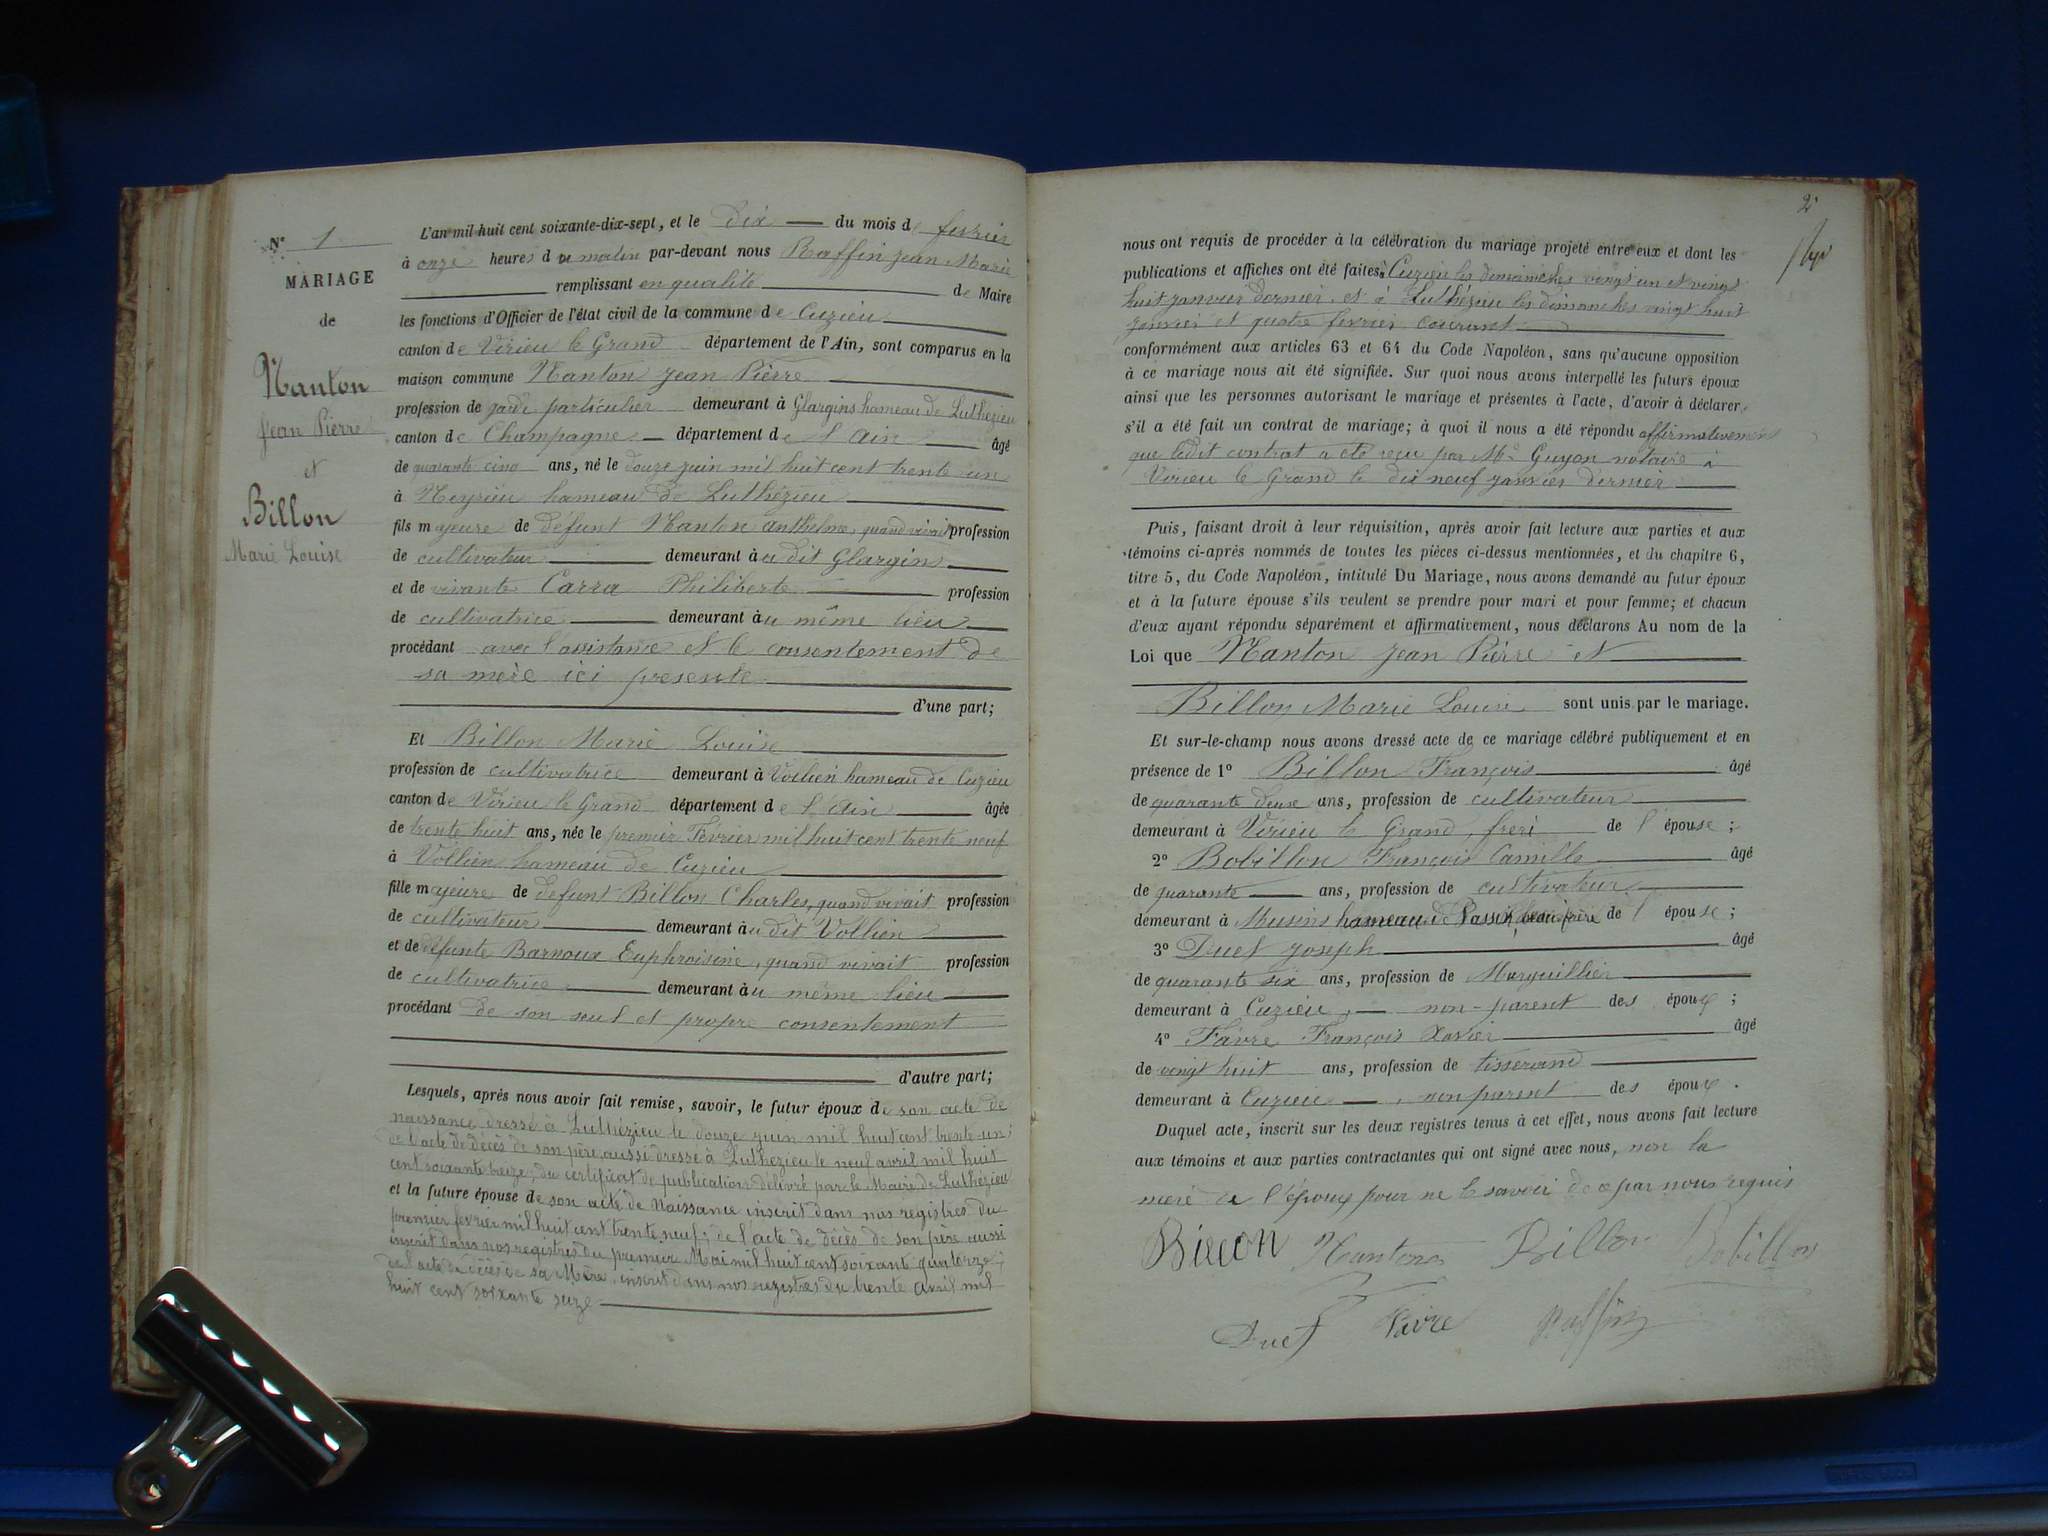 N° 1
MARIAGE
de
Nanton
Jean Pierre
et
Billon
Marie Louise
L'an mil huit cent soixante-dix-sept, et le dix du mois de fevrier
à onze heures du matin par-devant nous Raffin Jean Marie
remplissant en qualité de Maire
les fonctions d'Officier de l'état civil de la commune de Cuzieu
canton de Virieu le Grand département de l'Ain, sont comparus en la
maison commune Nanton Jean Pierre
profession de garde particulier demeurant à Glargins hameau de Luthezieu
canton de Champagne département de l'Ain âgé
de quarante cinq ans, né le douze juin mil huit cent trente un
à Neyrieu hameau de Luthézieu
fils majeure de défunt Nanton Anthelme, quand vivait profession
de cultivateur demeurant au dit Glargins
et de vivante Carra Philiberte profession
de cultivatrice demeurant au même lieu
procédant avec l'assistance et le consentement de
sa mère ici presente
d'une part;
Et Billon Marie Louise
profession de cultivatrice demeurant à Vollien hameau de Cuzieu
canton de Virieu le Grand département de l'Ain âgée
de trente huit ans, née le premier Février mil huit cent trente neuf
à Vollien hameau de Cuzieu
fille majeure de defunt Billon Charles, quand vivait profession
de cultivateur demeurant au dit Vollien
et de défunte Barnoux Euphroisine, quand vivait profession
de cultivatrice demeurant au même lieu
procédant de son seul et propre consentement
d'autre part;
Lesquels, après nous avoir fait remise, savoir, le futur époux de son acte de
naissance dressé à Luthézieu le douze juin mil huit cent trente un;
de l'acte de décès de son père, aussi dressé à Luthezieu le neuf avril mil huit
cent soixante treize; du certificat de publication délivré par le Maire de Luthézieu
et la future épouse de son acte de Naissance inscrit dans nos registres du
premier fevrier mil huit cent trente neuf; de l'acte de décès de son père aussi
inscrit dans nos registres du premier Mai mil huit cent soixante quatorze;
de l'acte de décès de sa Mère, inscrit dans nos registres du trente avril mil
huit cent soixante seize
2
nous ont requis de procéder à la célébration du mariage projeté entre eux et dont les
publications et affiches ont été faites à Cuzieu les dimanches vingt un et vingt
huit janvier dernier, et à Luthézieu les dimanches vingt huit
janvier et quatre fevrier courant
conformément aux articles 63 et 64 du Code Napoléon, sans qu'aucune opposition
à ce mariage nous ait été signifiée. Sur quoi nous avons interpellé les futurs époux
ainsi que les personnes autorisant le mariage et présentes à l'acte, d'avoir à déclarer
s'il a été fait un contrat de mariage; à quoi il nous a été répondu affirmativement
que ledit contrat a été reçu par Me Guyon notaire à
Virieu le Grand le dix neuf janvier dernier
Puis, faisant droit à leur réquisition, après avoir fait lecture aux parties et aux
témoins ci-après nommés de toutes les pièces ci-dessus mentionnées, et du chapitre 6,
titre 5, du Code Napoléon, intitulé Du Mariage, nous avons demandé au futur époux
et à la future épouse s'ils veulent se prendre pour mari et pour femme; et chacun
d'eux ayant répondu séparément et affirmativement, nous déclarons Au nom de la
Loi que Nanton Jean Pierre et
Billon Marie Louise sont unis par le mariage.
Et sur-le-champ nous avons dressé acte de ce mariage célébré publiquement et en
présence de 1° Billon François âgé
de quarante deux ans, profession de cultivateur
demeurant à Virieu le Grand, frere de l'épouse;
2° Bobillon François Camille âgé
de quarante ans, profession de cultivateur
demeurant à Musins hameau de Passin, beau frère de l'épouse;
3° Duet Joseph âgé
de quarante six ans, profession de Marguillier
demeurant à Cuzieu, non-parent des époux;
4° Favre François Xavier âgé
de vingt huit ans, profession de tisserand
demeurant à Cuzieu, non parent des époux.
Duquel acte, inscrit sur les deux registres tenus à cet effet, nous avons fait lecture
aux témoins et aux parties contractantes qui ont signé avec nous, non la
mère de l'époux pour ne le savoir de ce par nous requis
Billon Nanton Billon Bobillon
Duet Favre Raffin